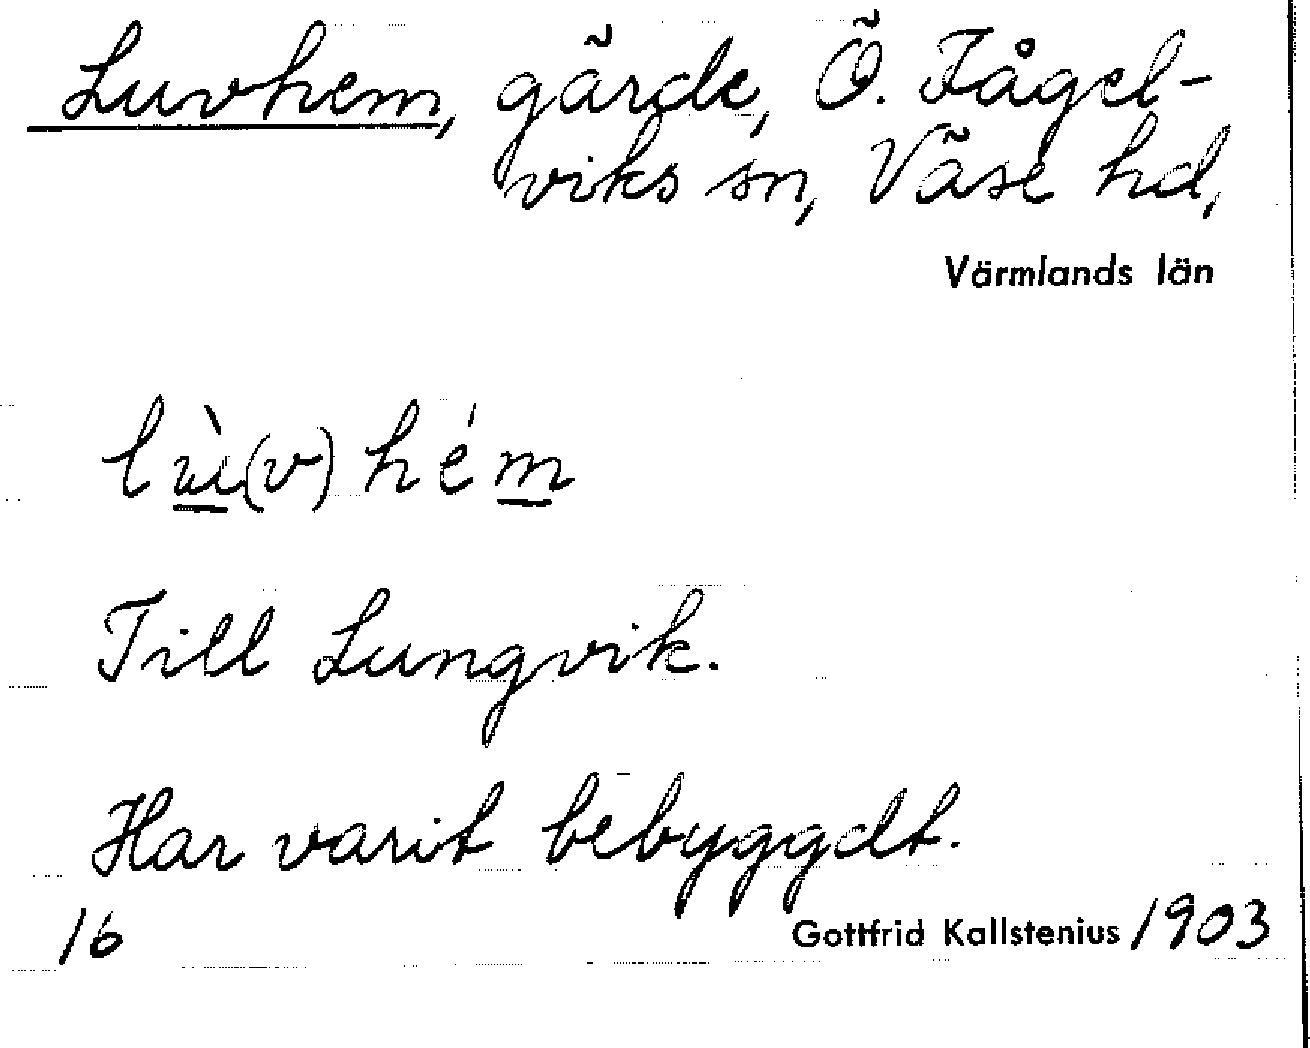 Luvhem, gärde, Ö. Fågel-
viks sn, Väse hd,
Värmlands län
lù(v)hém
Till Lungvik.
Har varit bebyggdt.
16
Gottfrid Kallstenius 1903